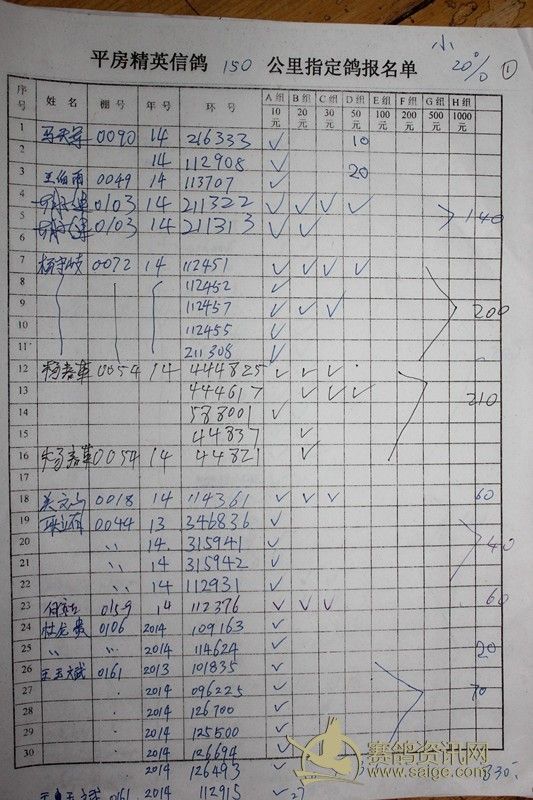 小
20%
①
平房精英信鸽 150 公里指定鸽报名单
序号 姓名 棚号 年号 环号 A组10元 B组20元 C组30元 D组50元 E组100元 F组200元 G组500元 H组1000元
1 0090 14 216333 ✓ 10
2 14 112908 ✓
3 王伯雨 0049 14 113707 ✓ 20
4 0103 14 211322 ✓ ✓ ✓ ✓
5 0103 14 211313 ✓ ✓ 140
6
7 0072 14 112451 ✓ ✓ ✓ ✓
8 112452 ✓
9 112457 ✓ ✓ ✓ 200
10 112455 ✓
11 211308 ✓
12 0054 14 444825 ✓ ✓ ✓
13 444617 ✓ ✓ ✓ 210
14 588001 ✓
15 44837 ✓
16 0054 14 44821 ✓
17
18 关文山 0018 14 114361 ✓ ✓ ✓ 60
19 0044 13 346836 ✓
20 〃 14 315941 ✓ 40
21 〃 14 315942 ✓
22 〃 14 112931 ✓
23 0159 14 112376 ✓ ✓ ✓ 60
24 杜龙贵 0106 2014 109163 ✓
25 〃 〃 2014 114624 ✓ 20
26 王玉斌 0161 2013 101835 ✓
27 2014 096225 ✓ 70
28 2014 126700 ✓
29 2014 125500 ✓
30 2014 126694 ✓
2014 126493 ✓ 830
0161 2014 112915
赛鸽资讯网
www.saige.com